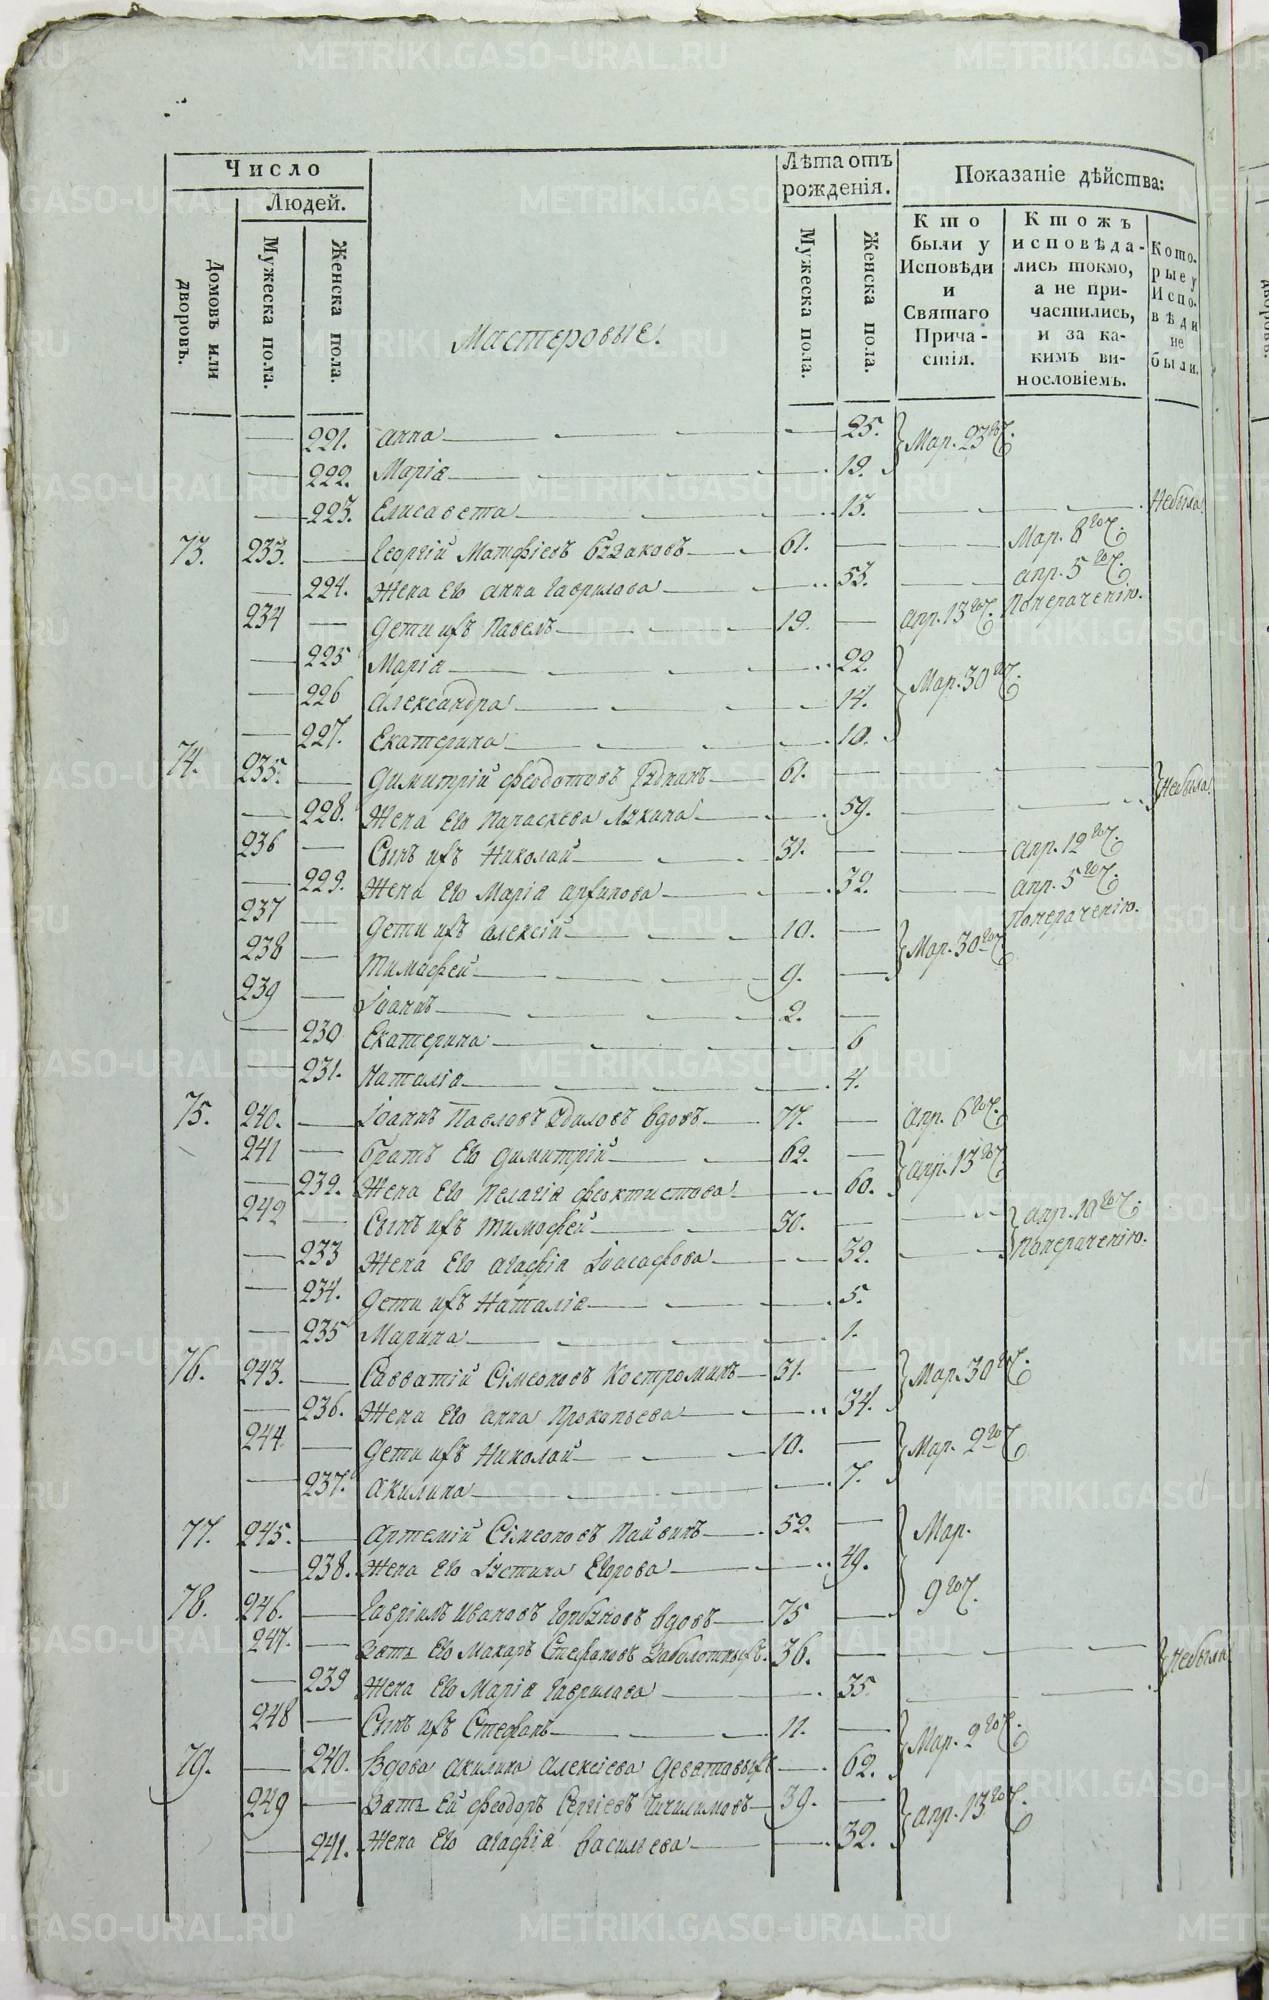 Число
Людей.
Домовъ или дворовъ.
Мужеска пола.
Женска пола.
Мастеровые.
Лѣта отъ рожденія.
Мужеска пола.
Женска пола.
Показаніе дѣйства:
Кто были у Исповѣди и Святаго Прича-стія.
Ктожъ исповѣда-лись токмо, а не при-частились, и за ка-кимъ ви-нословіемъ.
Кото-рые у Испо-вѣди не были.
— 221. Анна — 25. Мар. 23го
— 222. Марія — 19.
— 223. Елисавета — 13. — Небыла
73. 233. — Георгій Матфіевъ — 61. — Мар. 8го
— 224. Жена его Анна Гаврилова — 53. — Апр. 5го
234 — Дети ихъ Павелъ — 19. — Апр. 13го По нерачению.
— 225 Марія — 22. Мар. 30го
— 226 Александра — 14.
— 227. Екатерина — 10.
74. 235. — Димитрій Феодотовъ — 61. — Небыли
— 228. Жена его Параскева — 59.
236 — Сынъ ихъ Николай — 31. — Апр. 12го
— 229. Жена его Марія — 32. — Апр. 5го
По нерачению.
237 — Дети ихъ Алексій — 10. — Мар. 30го
238 — Тимофей — 9. —
239 — Іоаннъ — 2. —
— 230 Екатерина — 6
— 231. Наталія — 4.
75. 240. — Іоаннъ Павловъ вдовъ — 77. — Апр. 6го
241 — Братъ его Димитрій — 62. — Апр. 13го
— 232. Жена его Пелагія Феоктистова — 60.
242 — Сынъ ихъ Тимофей — 30. — Апр. 10го
— 233 Жена его Агафія Іоасафова — 32. — По нерачению.
— 234. Дети ихъ Наталія — 5.
— 235 Марина — 1.
76. 243. — Савватій Сімеоновъ Костроминъ — 31. — Мар. 30го
— 236. Жена его Анна Прокопьева — 34.
244 — Дети ихъ Николай — 10. — Мар. 2го
— 237. Акилина — 7.
77. 245. — Артемій Сімеоновъ Пайвинъ — 52. — Мар.
— 238. Жена его Іустина Егорова — 49.
9го
78. 246. — Гавріилъ Ивановъ Горбуновъ вдовъ — 75 —
247. — Зять его Макаръ Стефановъ Заболотныхъ. 36. — Небыли
— 239 Жена его Марія Гаврилова — 35
248 — Сынъ ихъ Стефанъ — 11. — Мар. 2го
79. — 240. Вдова Акилина Алексіева Девятовыхъ — 62.
249 — Зять ей Феодоръ Сергіевъ — 39. — Апр. 13го
— 241. Жена его Агафія Васильева — 32.
METRIKI.GASO-URAL.RU